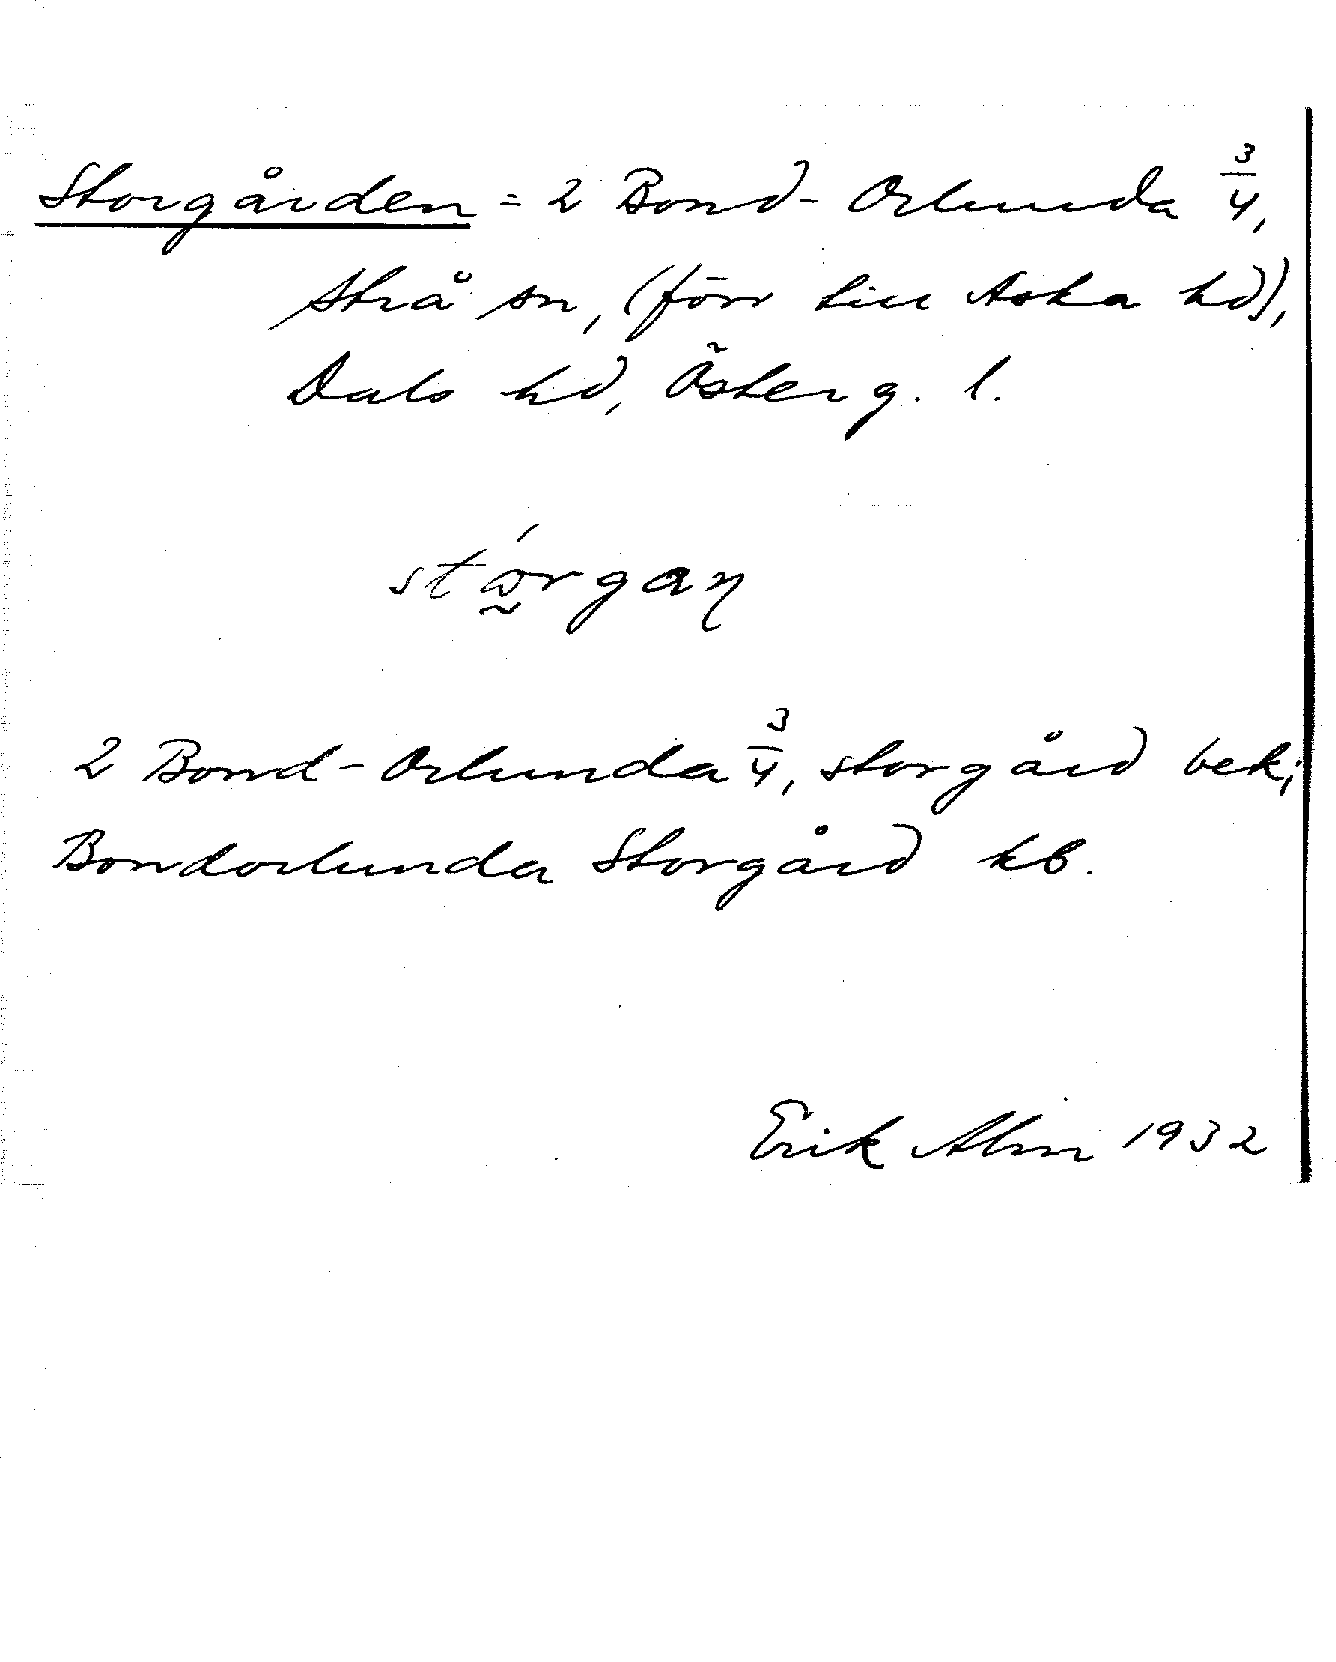 Storgården = 2 Bond-Orlunda 3/4,
Strå sn, (förr till Aska hd),
Dals hd, Österg. l.
2 Bond-Orlunda 3/4, storgård bek;
Bondorlunda Storgård kb.
Erik Alm 1932